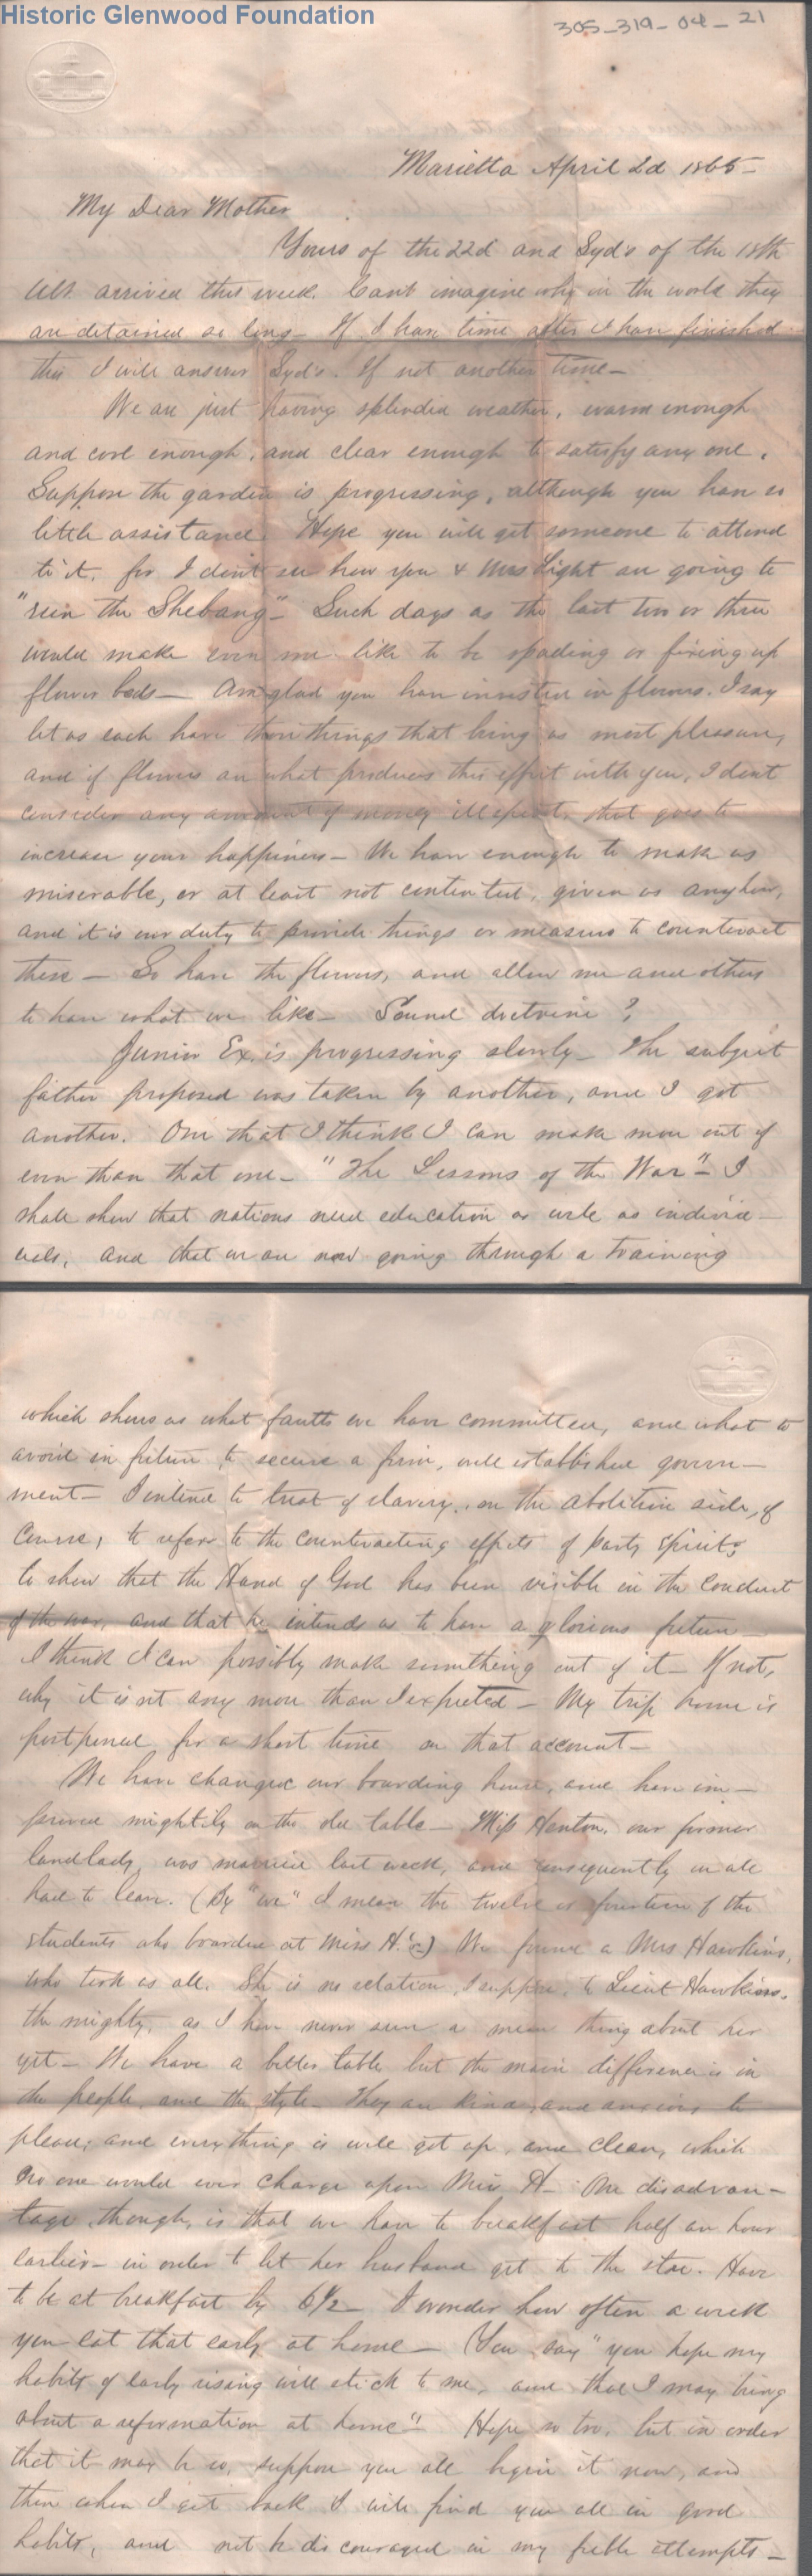 Historic Glenwood Foundation
305-319-04-21
Marietta April 2d 1865-
My Dear Mother
Yours of the 22d and Syd's of the 18th
Ult. arrived this week. Can't imagine why in the world they
are detained so long - If I have time after I have finished
this I will answer Syd's. If not another time -
We are just having splendid weather, warm enough
and cool enough, and clear enough to satisfy any one.
Suppose the garden is progressing, although you have so
little assistance. Hope you will get someone to attend
to it, for I don't see how you & Mrs Light are going to
"run the Shebang" - Such days as the last two or three
would make even me like to be spading or fixing up
flower beds - Am glad you have invested in flowers. I say
let us each have those things that bring us most pleasure,
and if flowers are what produces this effect with you, I don't
consider any amount of money ill spent, that goes to
increase your happiness - We have enough to make us
miserable, or at least not contented, given us anyhow,
and it is our duty to provide things or measures to counteract
these - So have the flowers, and allow me and others
to have what we like - Sound doctrine?
Junior Ex. is progressing slowly - The subject
father proposed was taken by another, and I got
another. One that I think I can make more out of
even than that one - "The Lessons of the War" - I
shall show that nations need education as well as individ-
uals, and that we are now going through a training
which shows us what faults we have committed, and what to
avoid in future, to secure a firm, well established govern-
ment - I intend to treat of slavery, on the abolition side, of
course, to refer to the counteracting effects of party spirit,
to show that the Hand of God has been visible in the conduct
of the war, and that he intends us to have a glorious future -
I think I can possibly make something out of it - If not,
why it is not any more than I expected - My trip home is
postponed for a short time on that account -
We have changed our boarding house, and have im-
proved mightily on the old table - Miss Henton, our former
landlady, was married last week, and consequently we all
had to leave. (By "we" I mean the twelve or fourteen of the
students who boarded at Miss H.'s) We found a Mrs Hawkins,
who took us all. She is no relation, I suppose, to Lieut Hawkins,
the mighty, as I have never seen a mean thing about her
yet - We have a better table but the main difference is in
the people, and the style - They are kind, and anxious to
please, and everything is well got up, and clean, which
no one would ever charge upon Miss H - One disadvan-
tage, though, is that we have to breakfast half an hour
earlier - in order to let her husband get to the store. Have
to be at breakfast by 6 1/2 - I wonder how often a week
you eat that early at home - You say "you hope my
habits of early rising will stick to me, and that I may bring
about a reformation at home" - Hope so too, but in order
that it may be so, suppose you all begin it now, and
then when I get back I will find you all in good
habits, and not be discouraged in my feeble attempts -